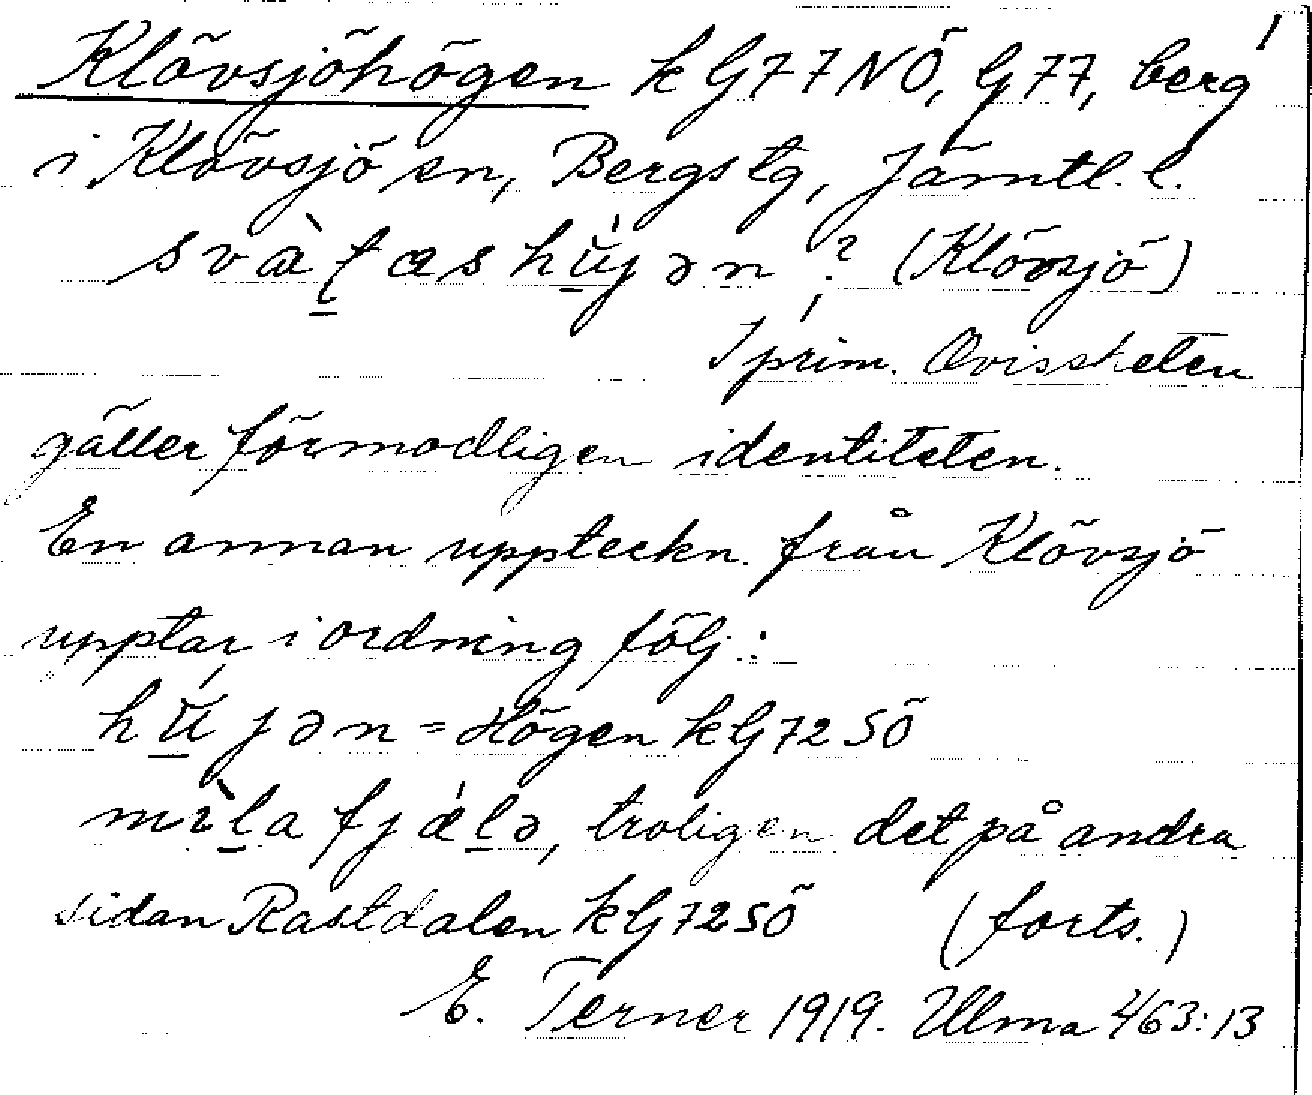 1
Klövsjöhögen k G77NÖ, G77, berg
i Klövsjö sn, Bergs tg, Jämtl. l.
svàt̲æshǘ̲jən? (Klövsjö)
I prim. Ovissheten
gäller förmodligen identiteten.
En annan uppteckn. från Klövsjö
upptar i ordning följ.:
hǘ̲jən = Högen kG72SÖ
mìl̲a fjǽl̲ə, troligen det på andra
sidan Rastdalen kG72SÖ (forts.)
E. Terner 1919. Ulma 463:13